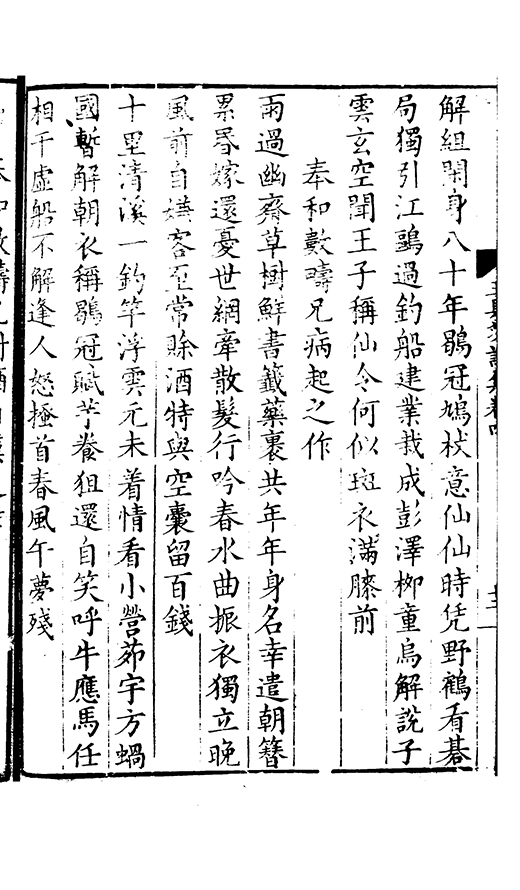 解組閑身八十年鶡冠鳩杖意仙仙時凭野鶴看碁
局獨引江鷗過釣船建業栽成彭澤柳童烏解說子
雲玄空聞王子稱仙令何似斑衣滿膝前
奉和數疇兄病起之作
雨過幽齋草樹鮮書籤藥裹共年年身名幸遣朝簪
累昏嫁還憂世網牽散髮行吟春水曲振衣獨立晚
風前自嫌客至常賒酒特與空囊留百錢
十里清溪一釣竿浮雲元未着情看小營茆宇方蝸
國暫解朝衣稱鶡冠賦芧養狙還自笑呼牛應馬任
相干虛船不解逢人怒搔首春風午夢殘